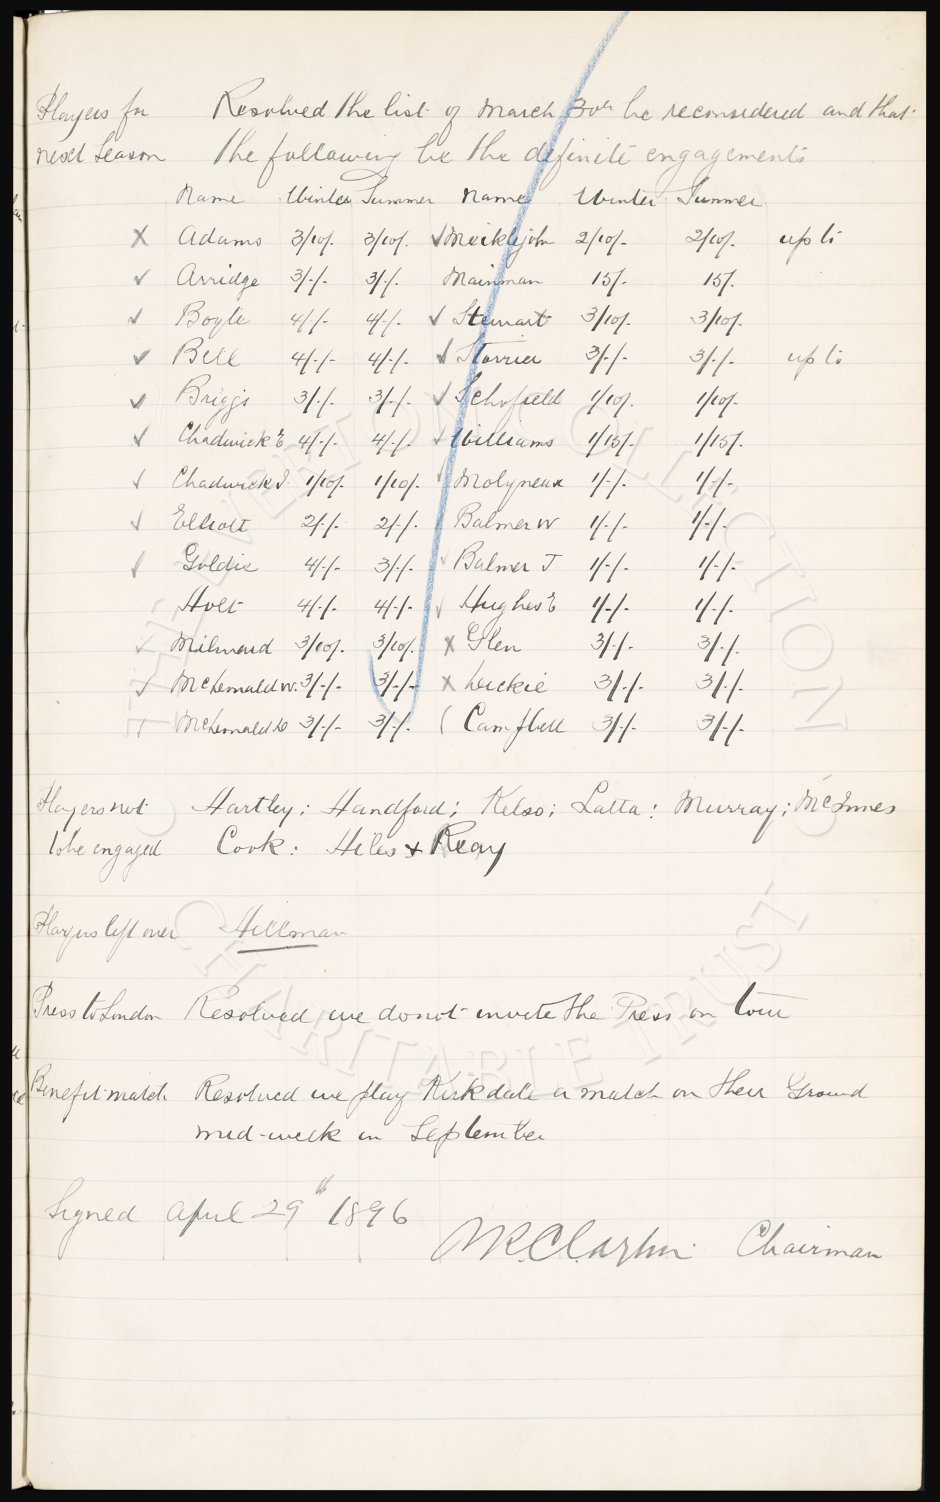 Players for Resolved the list of March 30th be reconsidered and that
next Season the following be the definite engagements
Name Winter Summer Name Winter Summer
X Adams 3/10/- 3/10/- ✓ Meiklejohn 2/10/- 2/10/- up to
✓ Arridge 3/-/- 3/-/- Mainman 15/- 15/-
✓ Boyle 4/-/- 4/-/- ✓ Stewart 3/10/- 3/10/-
✓ Bell 4/-/- 4/-/- ✓ Storrier 3/-/- 3/-/- up to
✓ Briggs 3/-/- 3/-/- ✓ Schofield 1/10/- 1/10/-
✓ Chadwick E 4/-/- 4/-/- ✓ Williams 1/15/- 1/15/-
✓ Chadwick J. 1/10/- 1/10/- ✓ Molyneux 1/-/- 1/-/-
✓ Elliott 2/-/- 2/-/- Balmer W 1/-/- 1/-/-
✓ Goldie 4/-/- 3/-/- ✓ Balmer J 1/-/- 1/-/-
Holt 4/-/- 4/-/- ✓ Hughes E 1/-/- 1/-/-
✓ Milward 3/10/- 3/10/- X Glen 3/-/- 3/-/-
✓ McDonald W. 3/-/- 3/-/- X Dickie 3/-/- 3/-/-
McDonald 3/-/- 3/-/- Campbell 3/-/- 3/-/-
Players not Hartley; Handford; Kelso; Latta; Murray; McInnes
to be engaged Cook: Hiles + Reay
Players left over Hillman
Press to London Resolved we do not invite the Press on tour
Benefit match Resolved we play Kirkdale a match on their Ground
mid-week in September
Signed April 29th 1896
W.R. Clayton Chairman
THE EVERTON COLLECTION
CHARITABLE TRUST